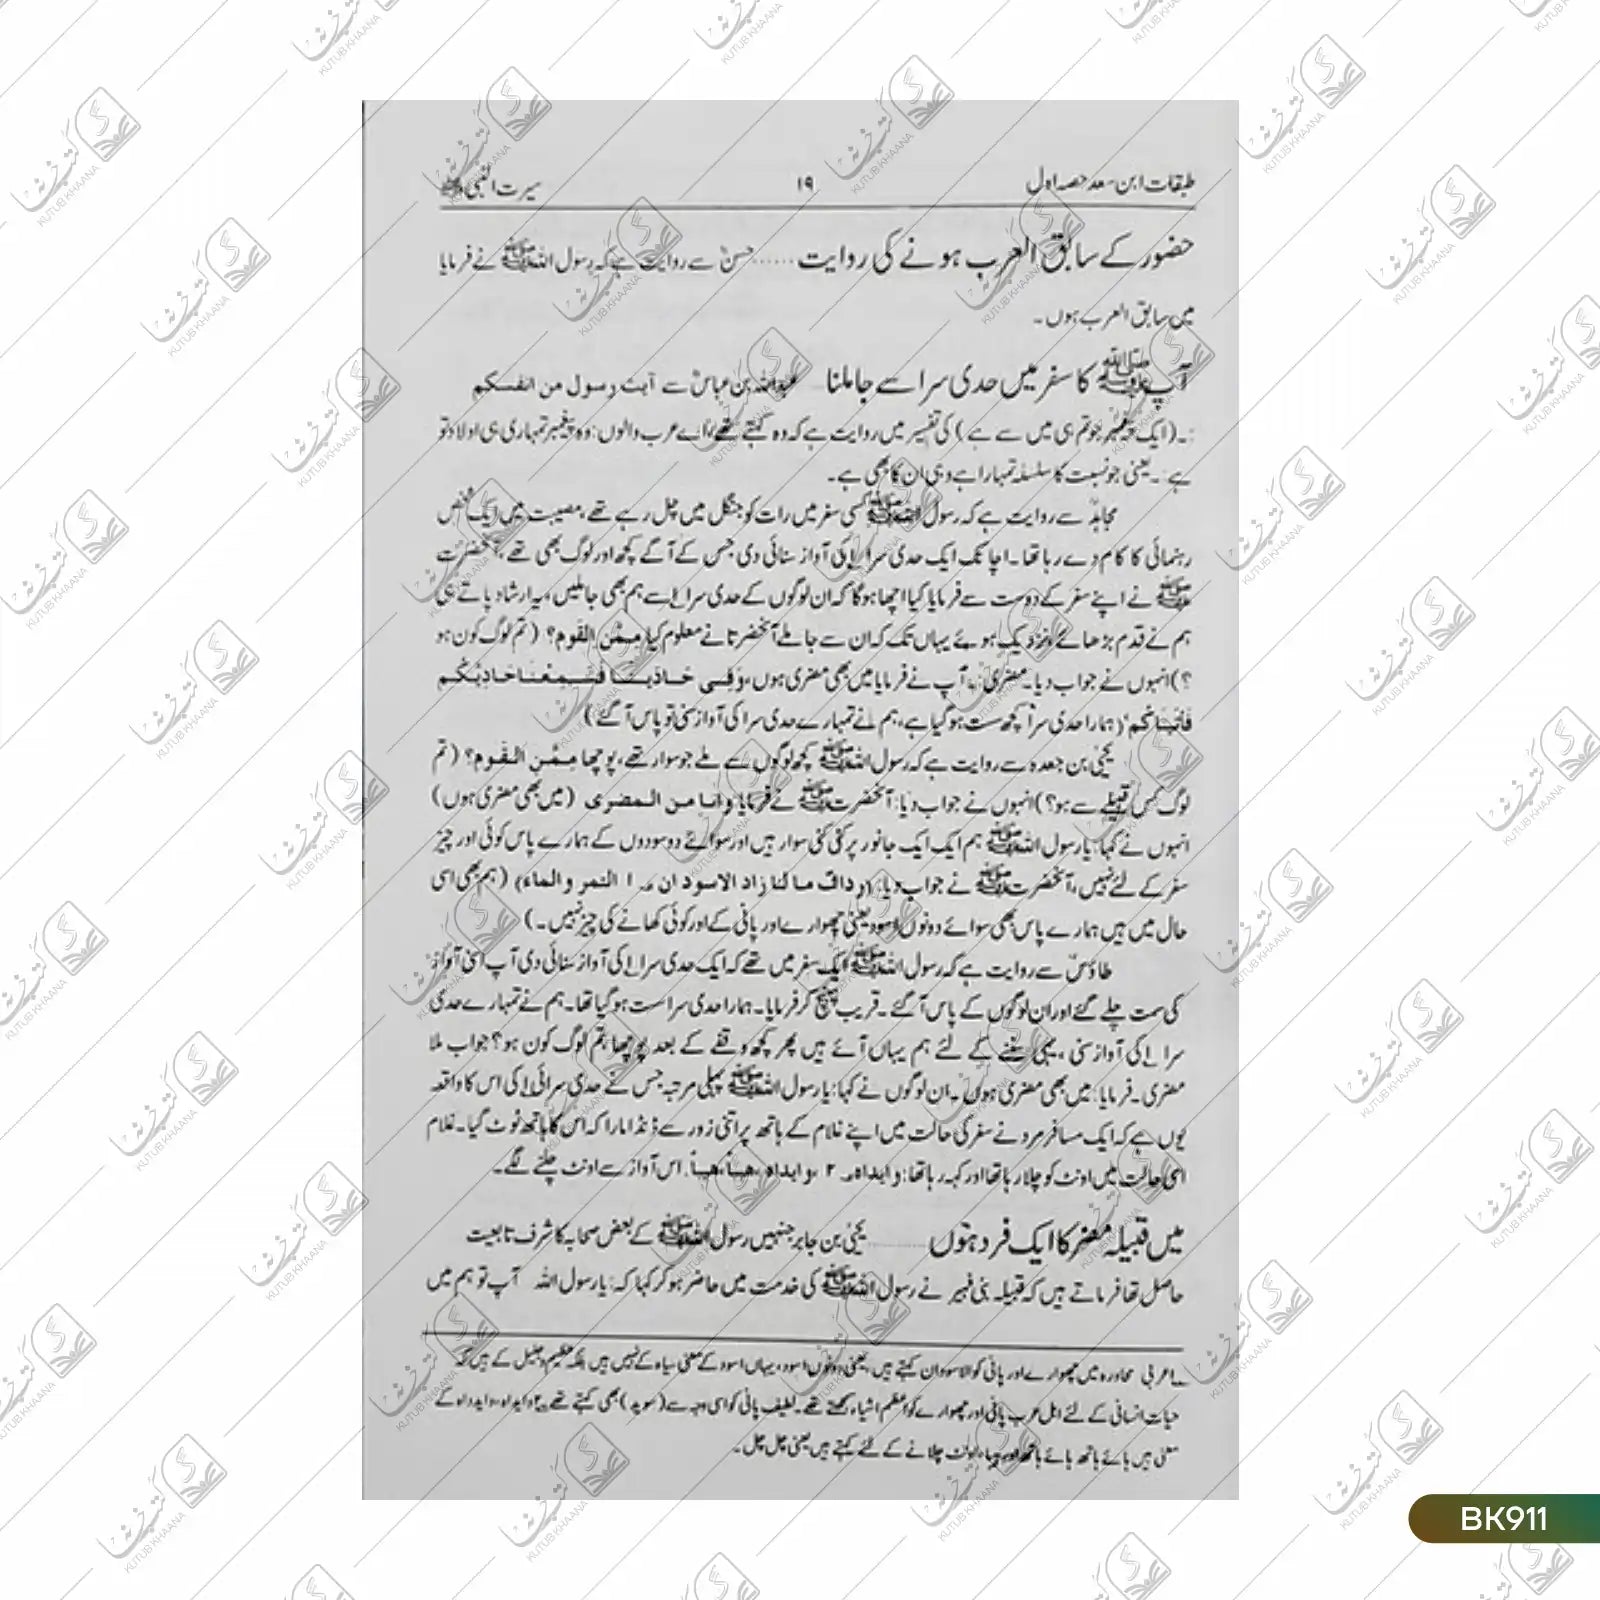 طبقات ابن سعد حصہ اول ۱۹ سیرت النبی ﷺ
حضور کے سابق العرب ہونے کی روایت ...... حسنؒ سے روایت ہے کہ رسول اللہ ﷺ نے فرمایا
میں سابق العرب ہوں۔
آپ ﷺ کا سفر میں حدی سرا سے جا ملنا عبداللہ بن عباسؓ سے آیت رسول من انفسکم
:۔(ایک پیغمبر جو تم ہی میں سے ہے) کی تفسیر میں روایت ہے کہ وہ کہتے تھے، اے عرب والوں: وہ پیغمبر تمہاری ہی اولاد تو
ہے:۔ یعنی جو نسبت کا سلسلہ تمہارا ہے وہی ان کا بھی ہے۔
مجاہدؒ سے روایت ہے کہ رسول اللہ ﷺ کسی سفر میں رات کو جنگل میں چل رہے تھے، مصیبت میں ایک شخص
رہنمائی کا کام دے رہا تھا۔ اچانک ایک حدی سرا کی آواز سنائی دی جس کے آگے کچھ اور لوگ بھی تھے، آنحضرت
ﷺ نے اپنے سفر کے دوست سے فرمایا کیا اچھا ہوگا کہ ان لوگوں کے حدی سرا سے ہم بھی جا ملیں، یہ ارشاد پاتے ہی
ہم نے قدم بڑھائے نزدیک ہوئے یہاں تک کہ ان سے جا ملے آنحضرتا نے معلوم کیا مِمَّنِ القوم؟ (تم لوگ کون ہو
؟) انہوں نے جواب دیا۔ مضری: آپ نے فرمایا میں بھی مضری ہوں، وَفی حادینا فسمعنا حادیکم
فاتیناکم (ہمارا حدی سرا کچھ ست ہو گیا ہے، ہم نے تمہارے حدی سرا کی آواز سنی تو پاس آ گئے)
یحییٰ بن جعدہ سے روایت ہے کہ رسول اللہ ﷺ کچھ لوگوں سے ملے جو سوار تھے، پوچھا مِمَّنِ القوم؟ (تم
لوگ کس قبیلے سے ہو؟) انہوں نے جواب دیا: آنحضرت ﷺ نے فرمایا وانا من المضری (میں بھی مضری ہوں)
انہوں نے کہا: یا رسول اللہ ﷺ ہم ایک ایک جانور پر کئی کئی سوار ہیں اور سوائے دو سودوں کے ہمارے پاس کوئی اور چیز
سفر کے لئے نہیں، آنحضرت ﷺ نے جواب دیا: مالنا زاد الاسودان التمر والماء) (ہم بھی اسی
حال میں ہیں ہمارے پاس بھی سوائے دونوں اسود یعنی چھوارے اور پانی کے اور کوئی کھانے کی چیز نہیں۔)
طاؤسؒ سے روایت ہے کہ رسول اللہ ﷺ ایک سفر میں تھے کہ ایک حدی سرا کی آواز سنائی دی آپ اسی آواز
کی سمت چلے گئے اور ان لوگوں کے پاس آ گئے۔ قریب پہنچ کر فرمایا۔ ہمارا حدی سرا ست ہو گیا تھا۔ ہم نے تمہارے حدی
سرا کی آواز سنی، یہی سننے کے لئے ہم یہاں آئے ہیں پھر کچھ وقفے کے بعد پوچھا تم لوگ کون ہو؟ جواب ملا
مضری۔ فرمایا: میں بھی مضری ہوں۔ ان لوگوں نے کہا: یا رسول اللہ ﷺ پہلی مرتبہ جس نے حدی سرائی کی اس کا واقعہ
یوں ہے کہ ایک مسافر مرد نے سفر کی حالت میں اپنے غلام کے ہاتھ پر اتنی زور سے ڈنڈا مارا کہ اس کا ہاتھ ٹوٹ گیا۔ غلام
اسی حالت میں اونٹ کو چلا رہا تھا اور کہہ رہا تھا: وایداہ ۲، وایداہ، ھیا، ھیا. اس آواز سے اونٹ چلنے لگے۔
میں قبیلہ مضر کا ایک فرد ہوں ........ یحییٰ بن جابر جنہیں رسول اللہ ﷺ کے بعض صحابہ کا شرف تابعیت
حاصل تھا فرماتے ہیں کہ قبیلہ بنی فہیر نے رسول اللہ ﷺ کی خدمت میں حاضر ہو کر کہا کہ: یا رسول اللہ آپ تو ہم میں
۱عربی محاورہ میں چھوارے اور پانی کو الاسودان کہتے ہیں، یعنی دونوں اسود، یہاں اسود کے معنی سیاہ کے نہیں ہیں بلکہ عظیم و جلیل کے ہیں کہ
حیات انسانی کے لئے اہل عرب پانی اور چھوارے کو اعظم اشیاء کہتے تھے۔ لطیف پانی کو اسی وجہ سے (سوید) بھی کہتے تھے ۲ وایداہ، وایداہ کے
معنی ہیں ہائے ہاتھ ہائے ہاتھ اور ہیا، اونٹ چلانے کے لئے کہتے ہیں یعنی چل چل۔
کتب خانہ
KUTUB KHAANA
BK911